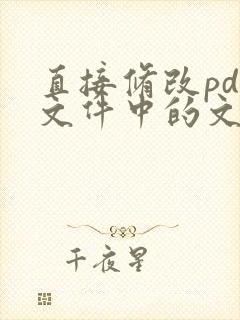 直接修改pd
文件中的文
千夜星